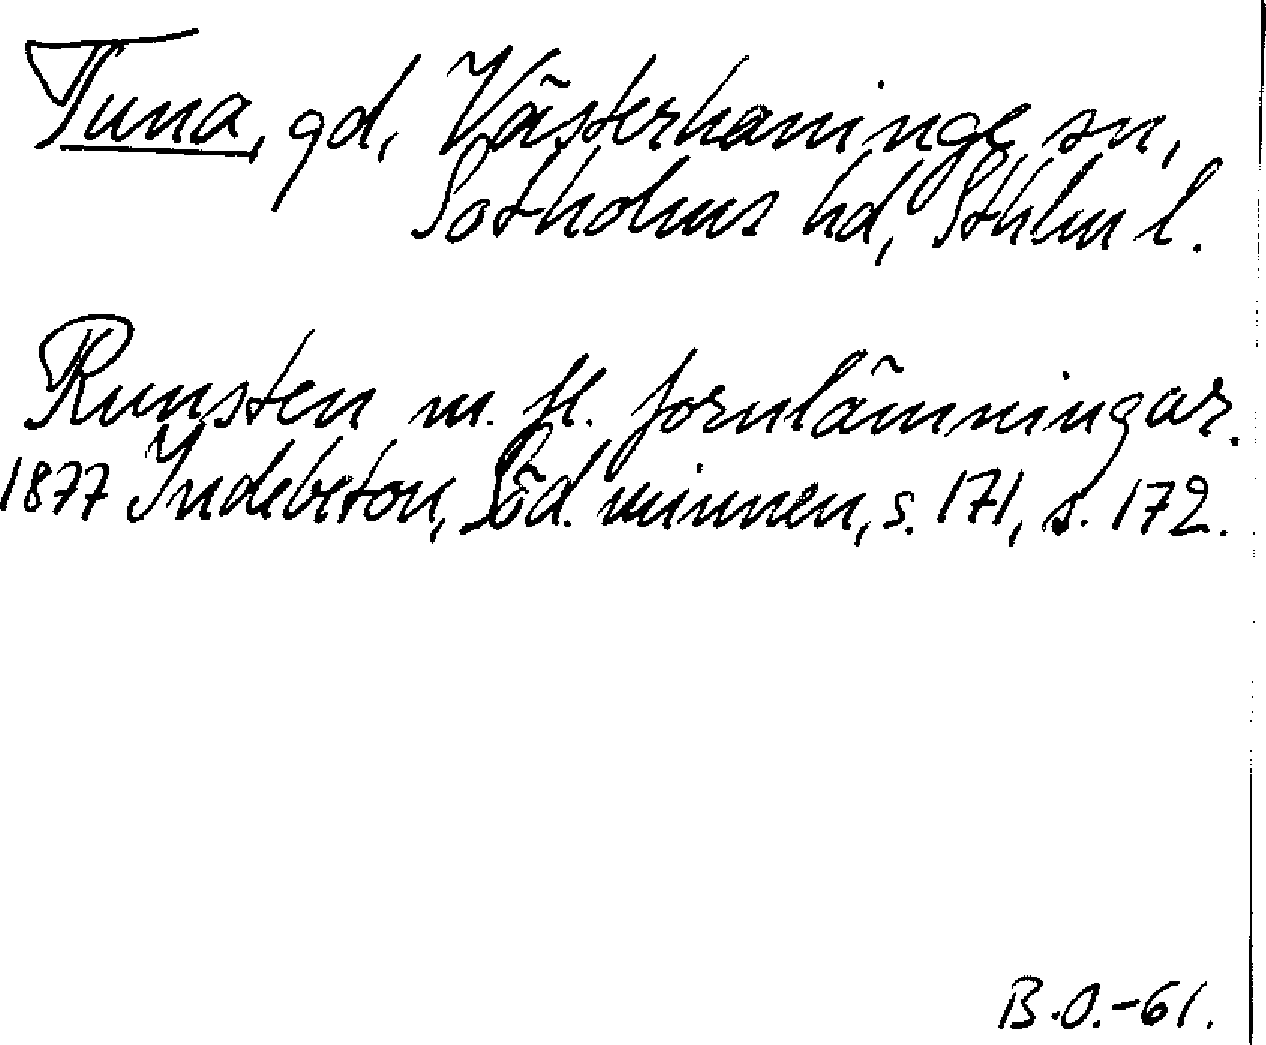 Tuna, gd, Västerhaninge sn,
Sotholms hd, Sthlm l.
Runsten m. fl. fornlämningar.
1877 Indebetou, Söd. minnen, s. 171, s. 172.
B.O.-61.